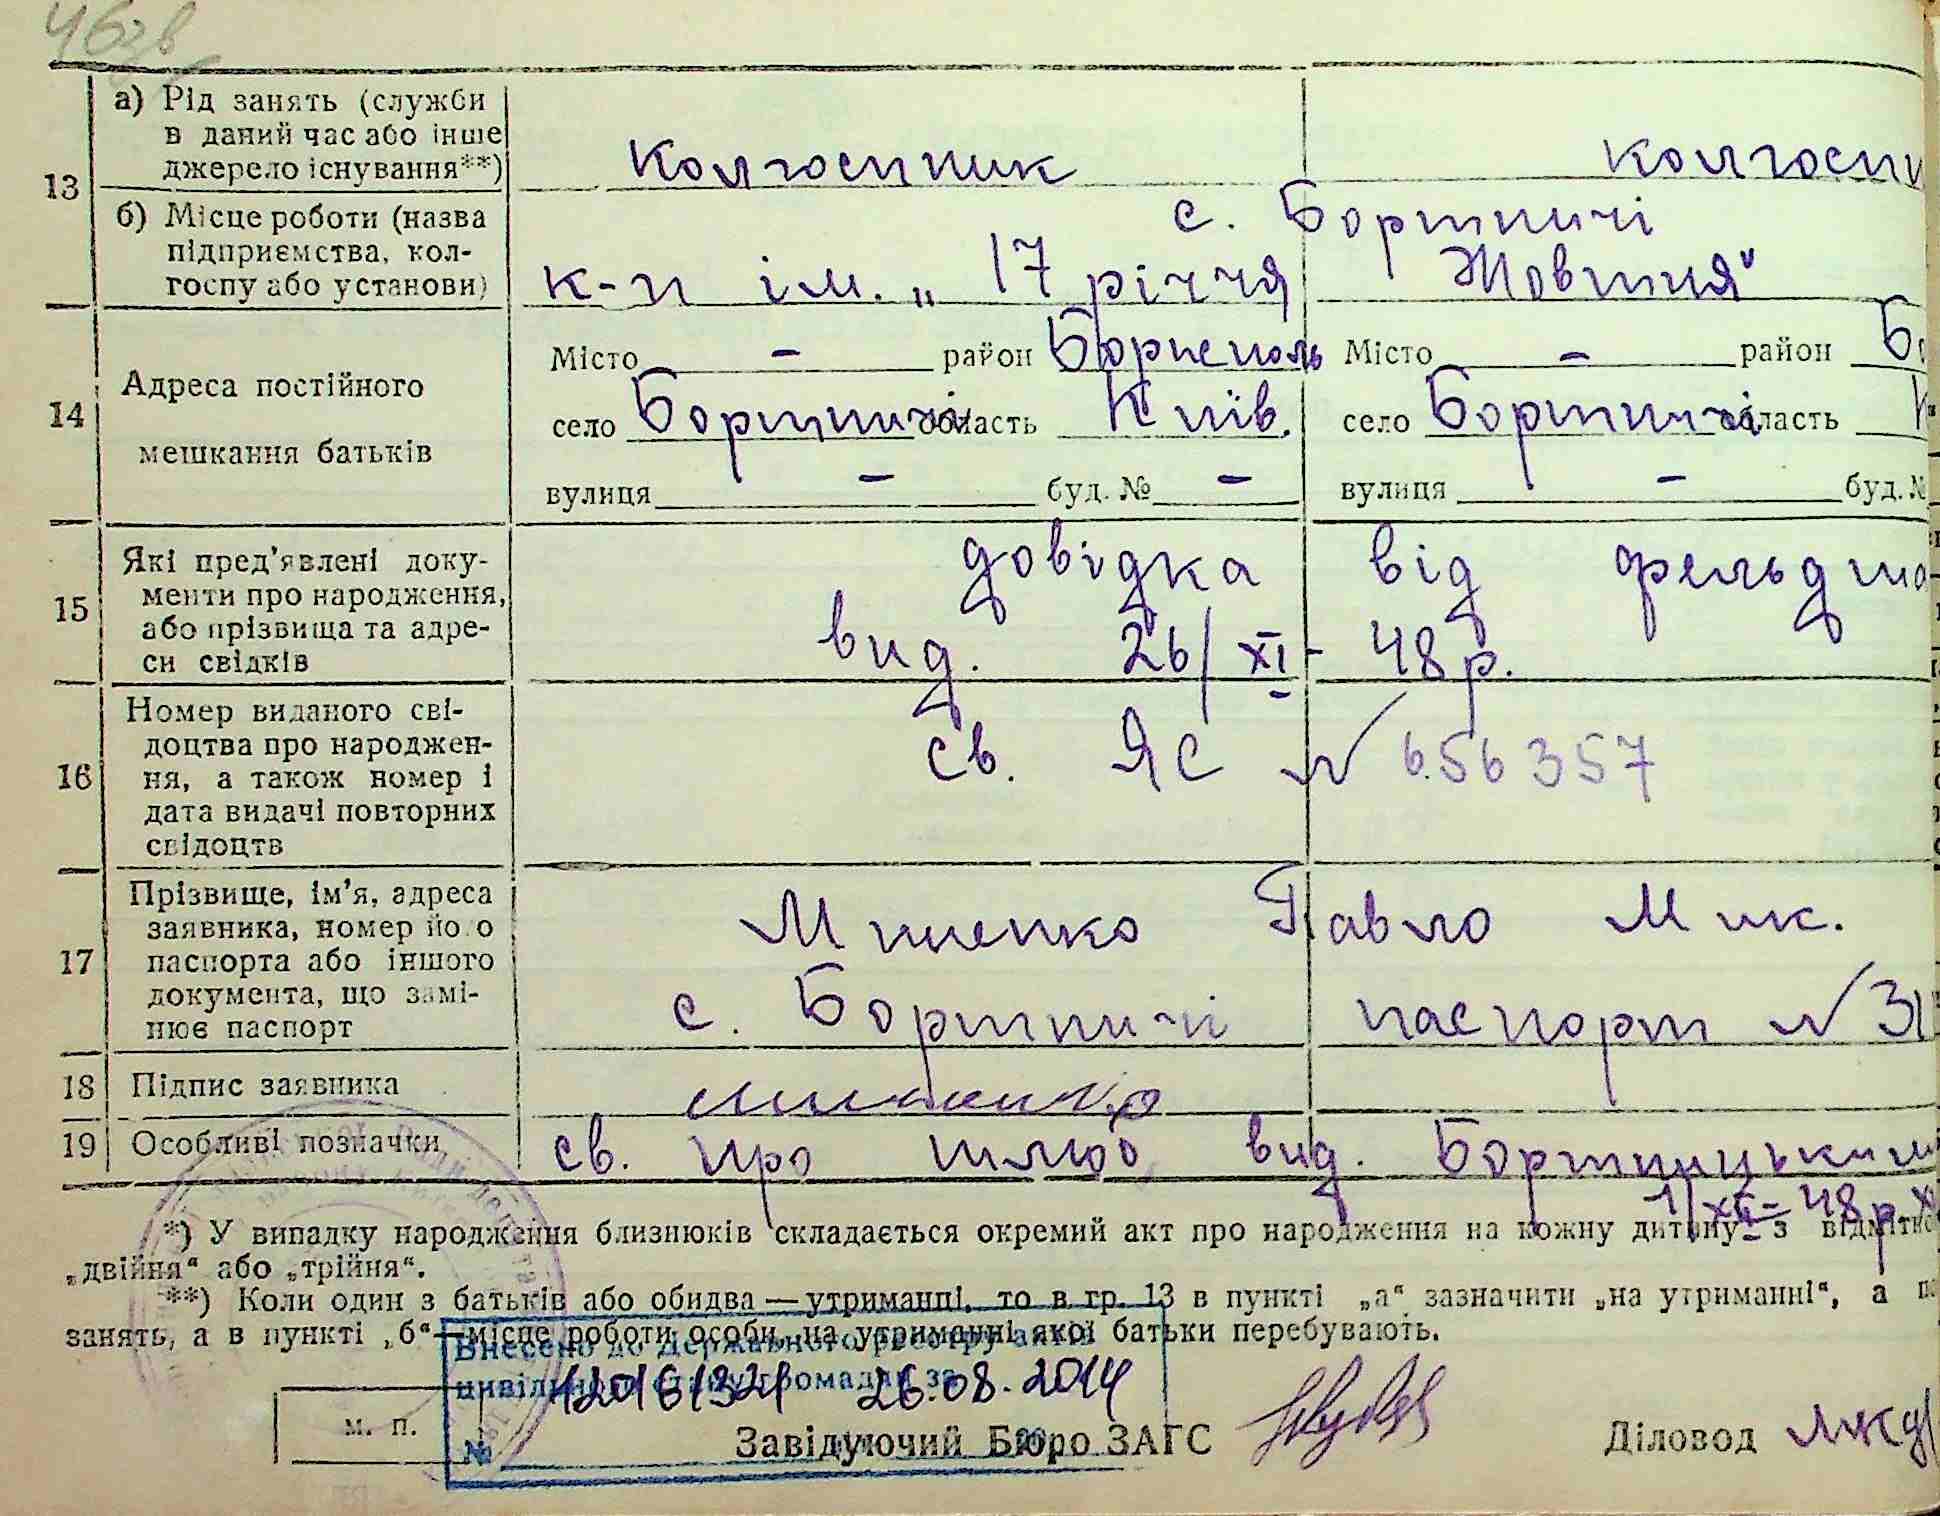 46зв
13
а) Рід занять (служби
в даний час або інше
джерело існування**)
колгоспник
колгоспн
б) Місце роботи (назва
підприємства, кол-
госпу або установи)
с. Бортничі
к-п ім. „17 річчя Жовтня"
14
Адреса постійного
мешкання батьків
Місто - район Бориспіль Місто - район Бо
село Бортничі область Київ. село Бортничі область К
вулиця - буд. № - вулиця - буд. №
15
Які пред'явлені доку-
менти про народження,
або прізвища та адре-
си свідків
довідка від фельдша
вид. 26/XI-48р.
16
Номер виданого сві-
доцтва про народжен-
ня, а також номер і
дата видачі повторних
свідоцтв
св. ЯС № 656357
17
Прізвище, ім'я, адреса
заявника, номер його
паспорта або іншого
документа, що замі-
нює паспорт
Миненко Павло Мик.
с. Бортничі паспорт № 31
18 Підпис заявника
19 Особливі позначки
св. про шлюб вид. Бортницьким
1/XI-48р.
*) У випадку народження близнюків складається окремий акт про народження на кожну дитину з відмітко
„двійня" або „трійня".
**) Коли один з батьків або обидва — утриманці, то в гр. 13 в пункті „а" зазначити „на утриманні", а п
занять, а в пункті „б"—місце роботи особи, на утриманні якої батьки перебувають.
Внесено до Державного реєстру актів
цивільного стану громадян за
26.08.2014
№
м. п.
Завідуючий Бюро ЗАГС
Діловод